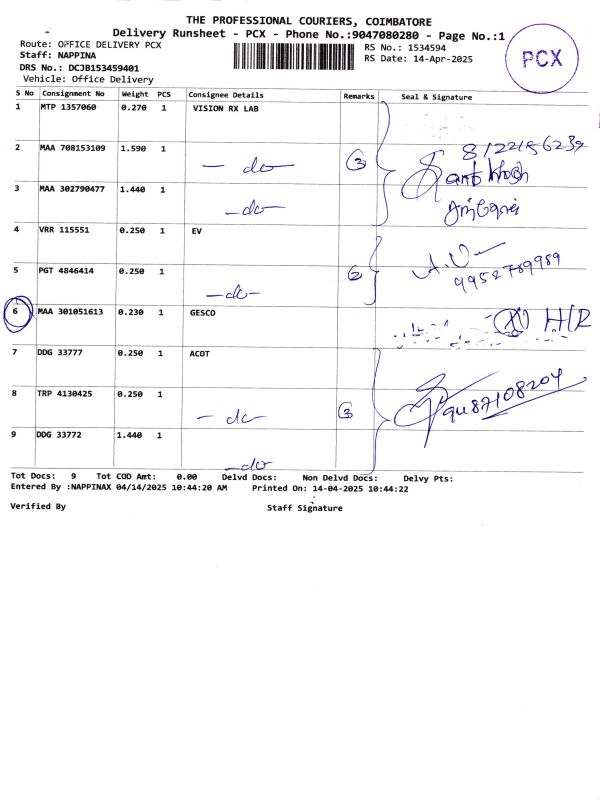 THE PROFESSIONAL COURIERS, COIMBATORE
Delivery Runsheet - PCX - Phone No.:9047080280 - Page No.:1
Route: OFFICE DELIVERY PCX
Staff: NAPPINA
DRS No.: DCJB153459401
Vehicle: Office Delivery
RS No.: 1534594
RS Date: 14-Apr-2025
PCX
S No Consignment No Weight PCS Consignee Details Remarks Seal & Signature
1 MTP 1357060 0.270 1 VISION RX LAB
2 MAA 708153109 1.590 1 — do — 3 8122156239
3 MAA 302790477 1.440 1 — do —
4 VRR 115551 0.250 1 EV
5 PGT 4846414 0.250 1 — do — 2 9952789989
6 MAA 301051613 0.230 1 GESCO
7 DDG 33777 0.250 1 ACOT
8 TRP 4130425 0.250 1 — do — 3 9487108204
9 DDG 33772 1.440 1 — do —
Tot Docs: 9 Tot COD Amt: 0.00 Delvd Docs: Non Delvd Docs: Delvy Pts:
Entered By :NAPPINAX 04/14/2025 10:44:20 AM Printed On: 14-04-2025 10:44:22
Verified By Staff Signature